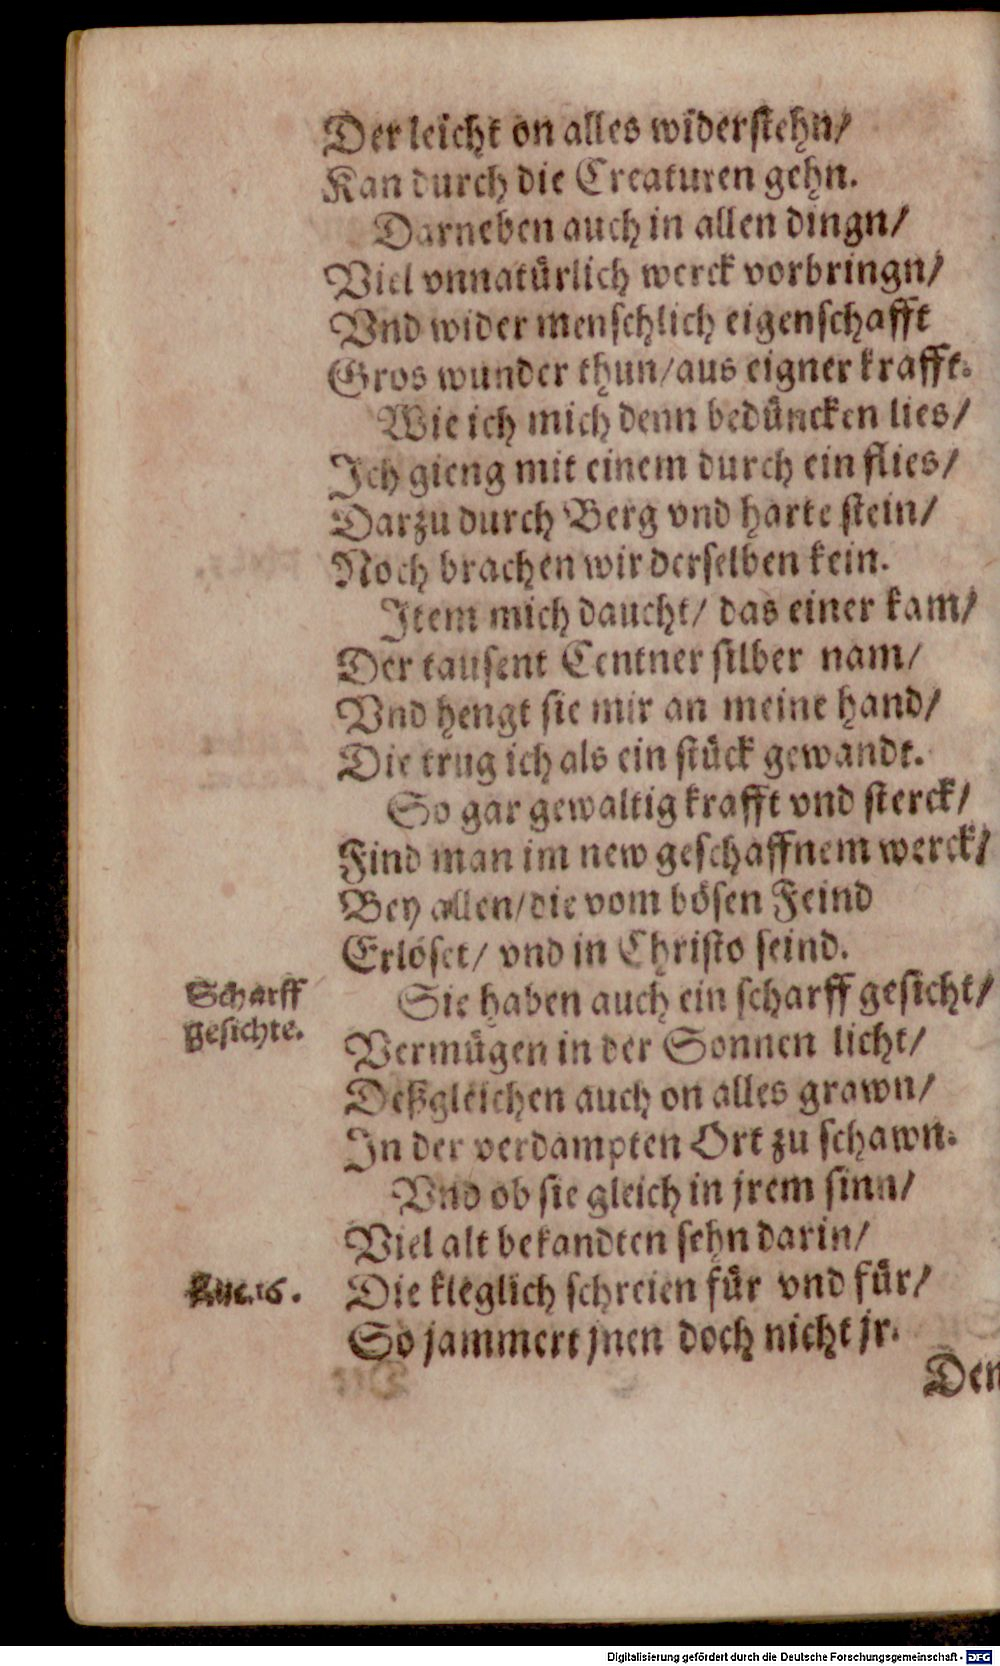 Der leicht on alles widerstehn/
Kan durch die Creaturen gehn.
Darneben auch in allen dingn/
Viel vnnatürlich werck vorbringn/
Vnd wider menschlich eigenschafft
Gros wunder thun/aus eigner krafft.
Wie ich mich denn bedüncken lies/
Ich gieng mit einem durch ein flies/
Darzu durch Berg vnd harte stein/
Noch brachen wir derselben kein.
Item mich daucht/ das einer kam/
Der tausent Centner silber nam/
Vnd hengt sie mir an meine hand/
Die trug ich als ein stück gewandt.
So gar gewaltig krafft vnd sterck/
Find man im new geschaffnem werck/
Bey allen/die vom bösen Feind
Erlöset/ vnd in Christo seind.
Scharff
gesichte.
Sie haben auch ein scharff gesicht/
Vermügen in der Sonnen licht/
Deßgleichen auch on alles grawn/
In der verdampten Ort zu schawn.
Vnd ob sie gleich in jrem sinn/
Viel alt bekandten sehn darin/
Luc.16.
Die kleglich schreien für vnd für/
So jammert jnen doch nicht jr.
Den
Digitalisierung gefördert durch die Deutsche Forschungsgemeinschaft - DFG